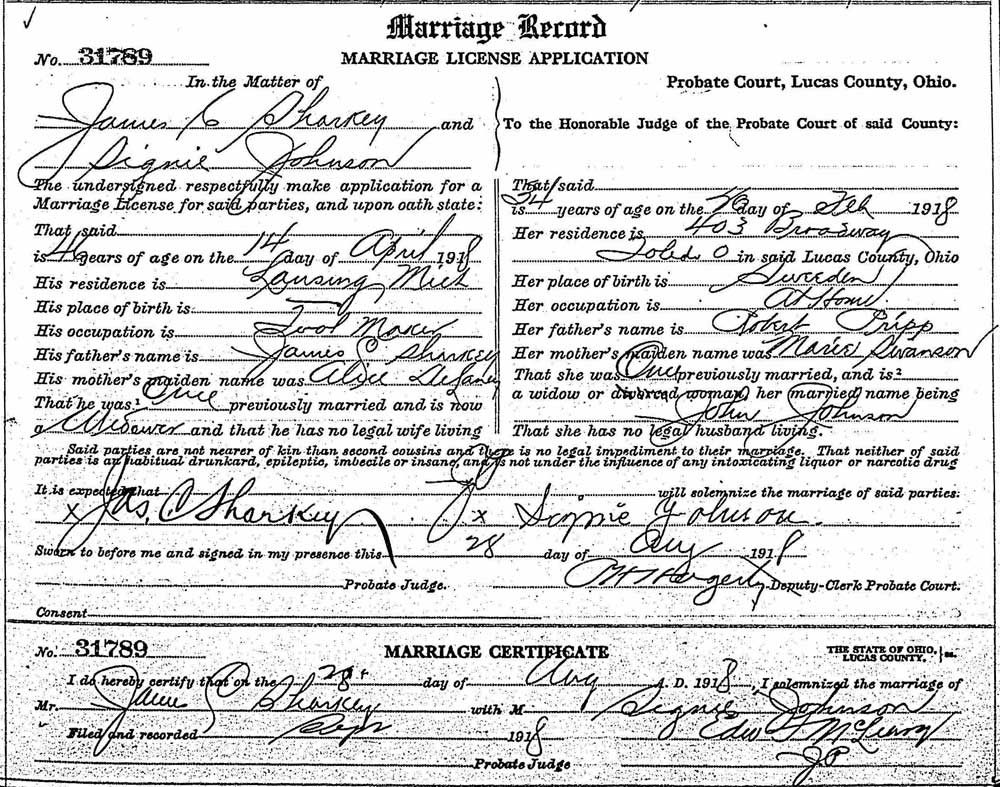 Marriage Record
No. 31789 MARRIAGE LICENSE APPLICATION
In the Matter of
James C Sharkey and
Signie Johnson
The undersigned respectfully make application for a
Marriage License for said parties, and upon oath state:
That said
is 46 years of age on the 14 day of April 1918
His residence is Lansing Mich
His place of birth is
His occupation is Tool Maker
His father's name is James C Sharkey
His mother's maiden name was Alice Delaney
That he was¹ Once previously married and is now
a Widower and that he has no legal wife living
Probate Court, Lucas County, Ohio.
To the Honorable Judge of the Probate Court of said County:
That said
is 34 years of age on the 26 day of Feb 1918
Her residence is 403 Broadway
Toledo O in said Lucas County, Ohio
Her place of birth is Sweden
Her occupation is At Home
Her father's name is Robert Pripp
Her mother's maiden name was Marie Swanson
That she was Once previously married, and is²
a widow or divorced woman, her married name being
John Johnson
That she has no legal husband living.
Said parties are not nearer of kin than second cousins and there is no legal impediment to their marriage. That neither of said
parties is an habitual drunkard, epileptic, imbecile or insane, and is not under the influence of any intoxicating liquor or narcotic drug
It is expected that will solemnize the marriage of said parties.
x Jas. C Sharkey x Signie Johnson
Sworn to before me and signed in my presence this 28 day of Aug 1918
Probate Judge. Hagerty Deputy-Clerk Probate Court.
Consent
No. 31789 MARRIAGE CERTIFICATE THE STATE OF OHIO, LUCAS COUNTY, } ss.
I do hereby certify that on the 28t day of Aug A. D. 1918, I solemnized the marriage of
Mr. James C Sharkey with M Signie Johnson
Filed and recorded Sept 1918 Edw
Probate Judge JP